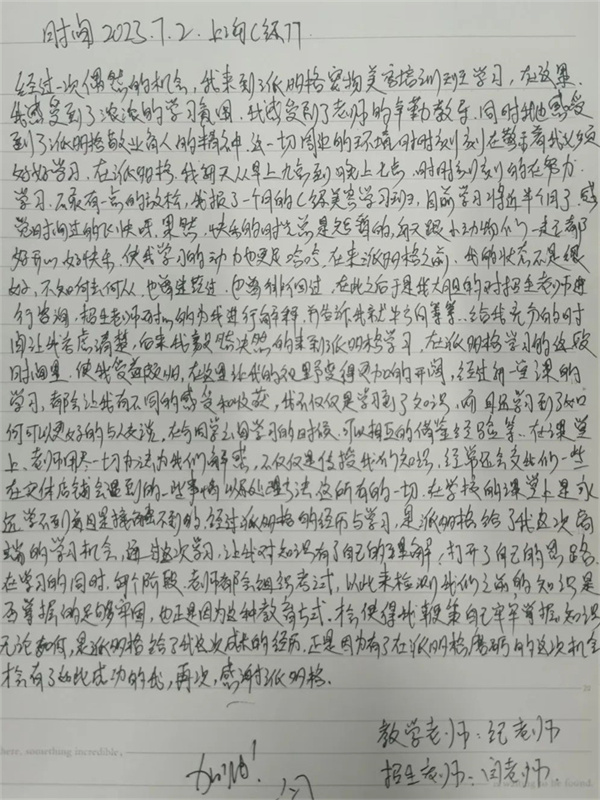 时间 2023.7.2. 上海C级17
经过一次偶然的机会，我来到了派多格宠物美容培训班学习，在这里
我感受到了浓浓的学习氛围，我感受到了老师的辛勤教导，同时我也感受
到了派多格敬业育人的精神，这一切周边的环境时时刻刻在警示着我必须
好好学习，在派多格，我每天从早上九点到晚上七点，时时刻刻的在努力
学习，不敢有一点的放松，我报了一个月的C级美容学习班，目前学习将近半个月了，感
觉时间过的飞快呀，果然，快乐的时光总是短暂的，每天跟小动物们一起都
好开心好快乐，使我学习的动力也更足哈哈，在来派多格之前，我的状态不是很
好，不知何去何从，也曾迷茫过，也曾徘徊过，在此之后于是我大胆的对招生老师进
行咨询，招生老师耐心的为我进行解释，并告诉我就业方向等等，给我充分的时
间让我考虑清楚，后来我毅然决然的来到派多格学习，在派多格学习的这段
时间里，使我受益颇深，在这里让我的视野变得更加的开阔，经过每一堂课的
学习，都会让我有不同的感受和收获，我不仅仅是学习到了知识，而且还学习到了如
何可以更好的与人交谈，在与同学之间学习的时候，可以相互的借鉴经验等，在课堂
上，老师用尽一切办法为我们解惑，不仅仅是传授我们知识，经常还会交我们一些
在实体店铺会遇到的一些事情以及处理方法，这所有的一切，在学校的课堂上是永
远学不到而且是接触不到的，经过派多格的经历与学习，是派多格给了我这次高
端的学习机会，通过这次学习，让我对知识有了自己的理解，打开了自己的思路，
在学习的同时，每个阶段，老师都会组织考试，以此来检测我们之前的知识是
否掌握的足够牢固，也正是因为这种教育方式，才会使得我鞭策自己牢牢掌握知识
无论如何，是派多格给了我这次成长的经历，正是因为有了在派多格磨砺的这次机会
才会有了如此成功的我，再次，感谢派多格.
教学老师：纪老师
here, something incredible,
加油！
招生老师：闫老师.